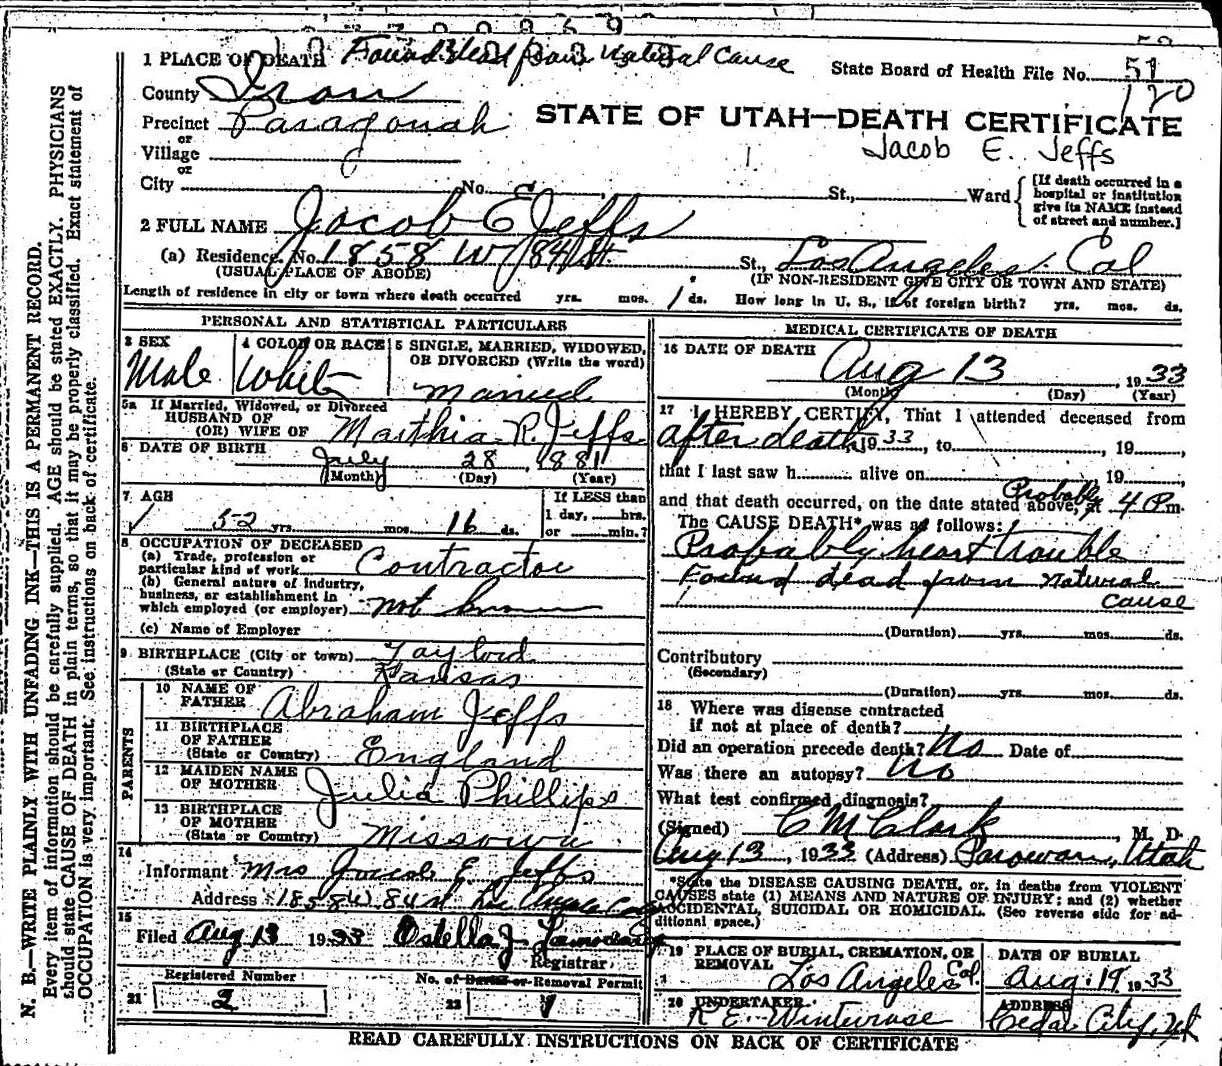 1 PLACE OF DEATH Found dead from natural cause
State Board of Health File No. 51
120
County Iron
STATE OF UTAH—DEATH CERTIFICATE
Precinct Paragonah
Jacob E. Jeffs
or
Village
or
City No. St., Ward
[If death occurred in a hospital or institution give its NAME instead of street and number.]
2 FULL NAME Jacob E Jeffs
(a) Residence, No. 1858 W 84 St. St., Los Angeles Cal
(USUAL PLACE OF ABODE) (IF NON-RESIDENT GIVE CITY OR TOWN AND STATE)
Length of residence in city or town where death occurred yrs. mos. 1 ds. How long in U. S., if of foreign birth? yrs. mos. ds.
PERSONAL AND STATISTICAL PARTICULARS
3 SEX
Male
4 COLOR OR RACE
White
5 SINGLE, MARRIED, WIDOWED, OR DIVORCED (Write the word)
Married
5a If Married, Widowed, or Divorced
HUSBAND OF
(OR) WIFE OF Marthia R. Jeffs
6 DATE OF BIRTH July 28, 1881
(Month) (Day) (Year)
7 AGE
52 yrs. mos. 16 ds.
If LESS than
1 day, hrs.
or min.?
8 OCCUPATION OF DECEASED
(a) Trade, profession or
particular kind of work Contractor
(b) General nature of industry,
business, or establishment in
which employed (or employer) not known
(c) Name of Employer
9 BIRTHPLACE (City or town) Taylord
(State or Country) Kansas
PARENTS
10 NAME OF
FATHER Abraham Jeffs
11 BIRTHPLACE
OF FATHER
(State or Country) England
12 MAIDEN NAME
OF MOTHER Julia Phillips
13 BIRTHPLACE
OF MOTHER
(State or Country) Missowa
14
Informant Mrs Jacob E. Jeffs
Address 1858 W. 84 st Los Angeles Cal
15
Filed Aug 13 1933 Ostella J.
Registrar
Registered Number
21 2
No. of Burial or Removal Permit
22 1
MEDICAL CERTIFICATE OF DEATH
16 DATE OF DEATH Aug 13, 1933
(Month) (Day) (Year)
17 I HEREBY CERTIFY, That I attended deceased from
after death, 1933, to , 19 ,
that I last saw h alive on 19 ,
and that death occurred, on the date stated above, at Probably 4 P m.
The CAUSE DEATH* was as follows:
Probably heart trouble
Found dead from natural
cause
(Duration) yrs. mos. ds.
Contributory
(Secondary)
(Duration) yrs. mos. ds.
18 Where was disease contracted
if not at place of death?
Did an operation precede death? No Date of
Was there an autopsy? No
What test confirmed diagnosis?
(Signed) C M Clark, M. D.
Aug 13, 1933 (Address) Parowan, Utah
*State the DISEASE CAUSING DEATH, or, in deaths from VIOLENT
CAUSES state (1) MEANS AND NATURE OF INJURY; and (2) whether
ACCIDENTAL, SUICIDAL OR HOMICIDAL. (See reverse side for ad-
ditional space.)
19 PLACE OF BURIAL, CREMATION, OR
REMOVAL Los Angeles Cal.
DATE OF BURIAL
Aug. 19, 1933
20 UNDERTAKER
R E. Winterrose
ADDRESS
Cedar City, Ut
READ CAREFULLY INSTRUCTIONS ON BACK OF CERTIFICATE
N. B.—WRITE PLAINLY WITH UNFADING INK—THIS IS A PERMANENT RECORD.
Every item of information should be carefully supplied. AGE should be stated EXACTLY. PHYSICIANS
should state CAUSE OF DEATH in plain terms, so that it may be properly classified. Exact statement of
OCCUPATION is very important. See instructions on back of certificate.